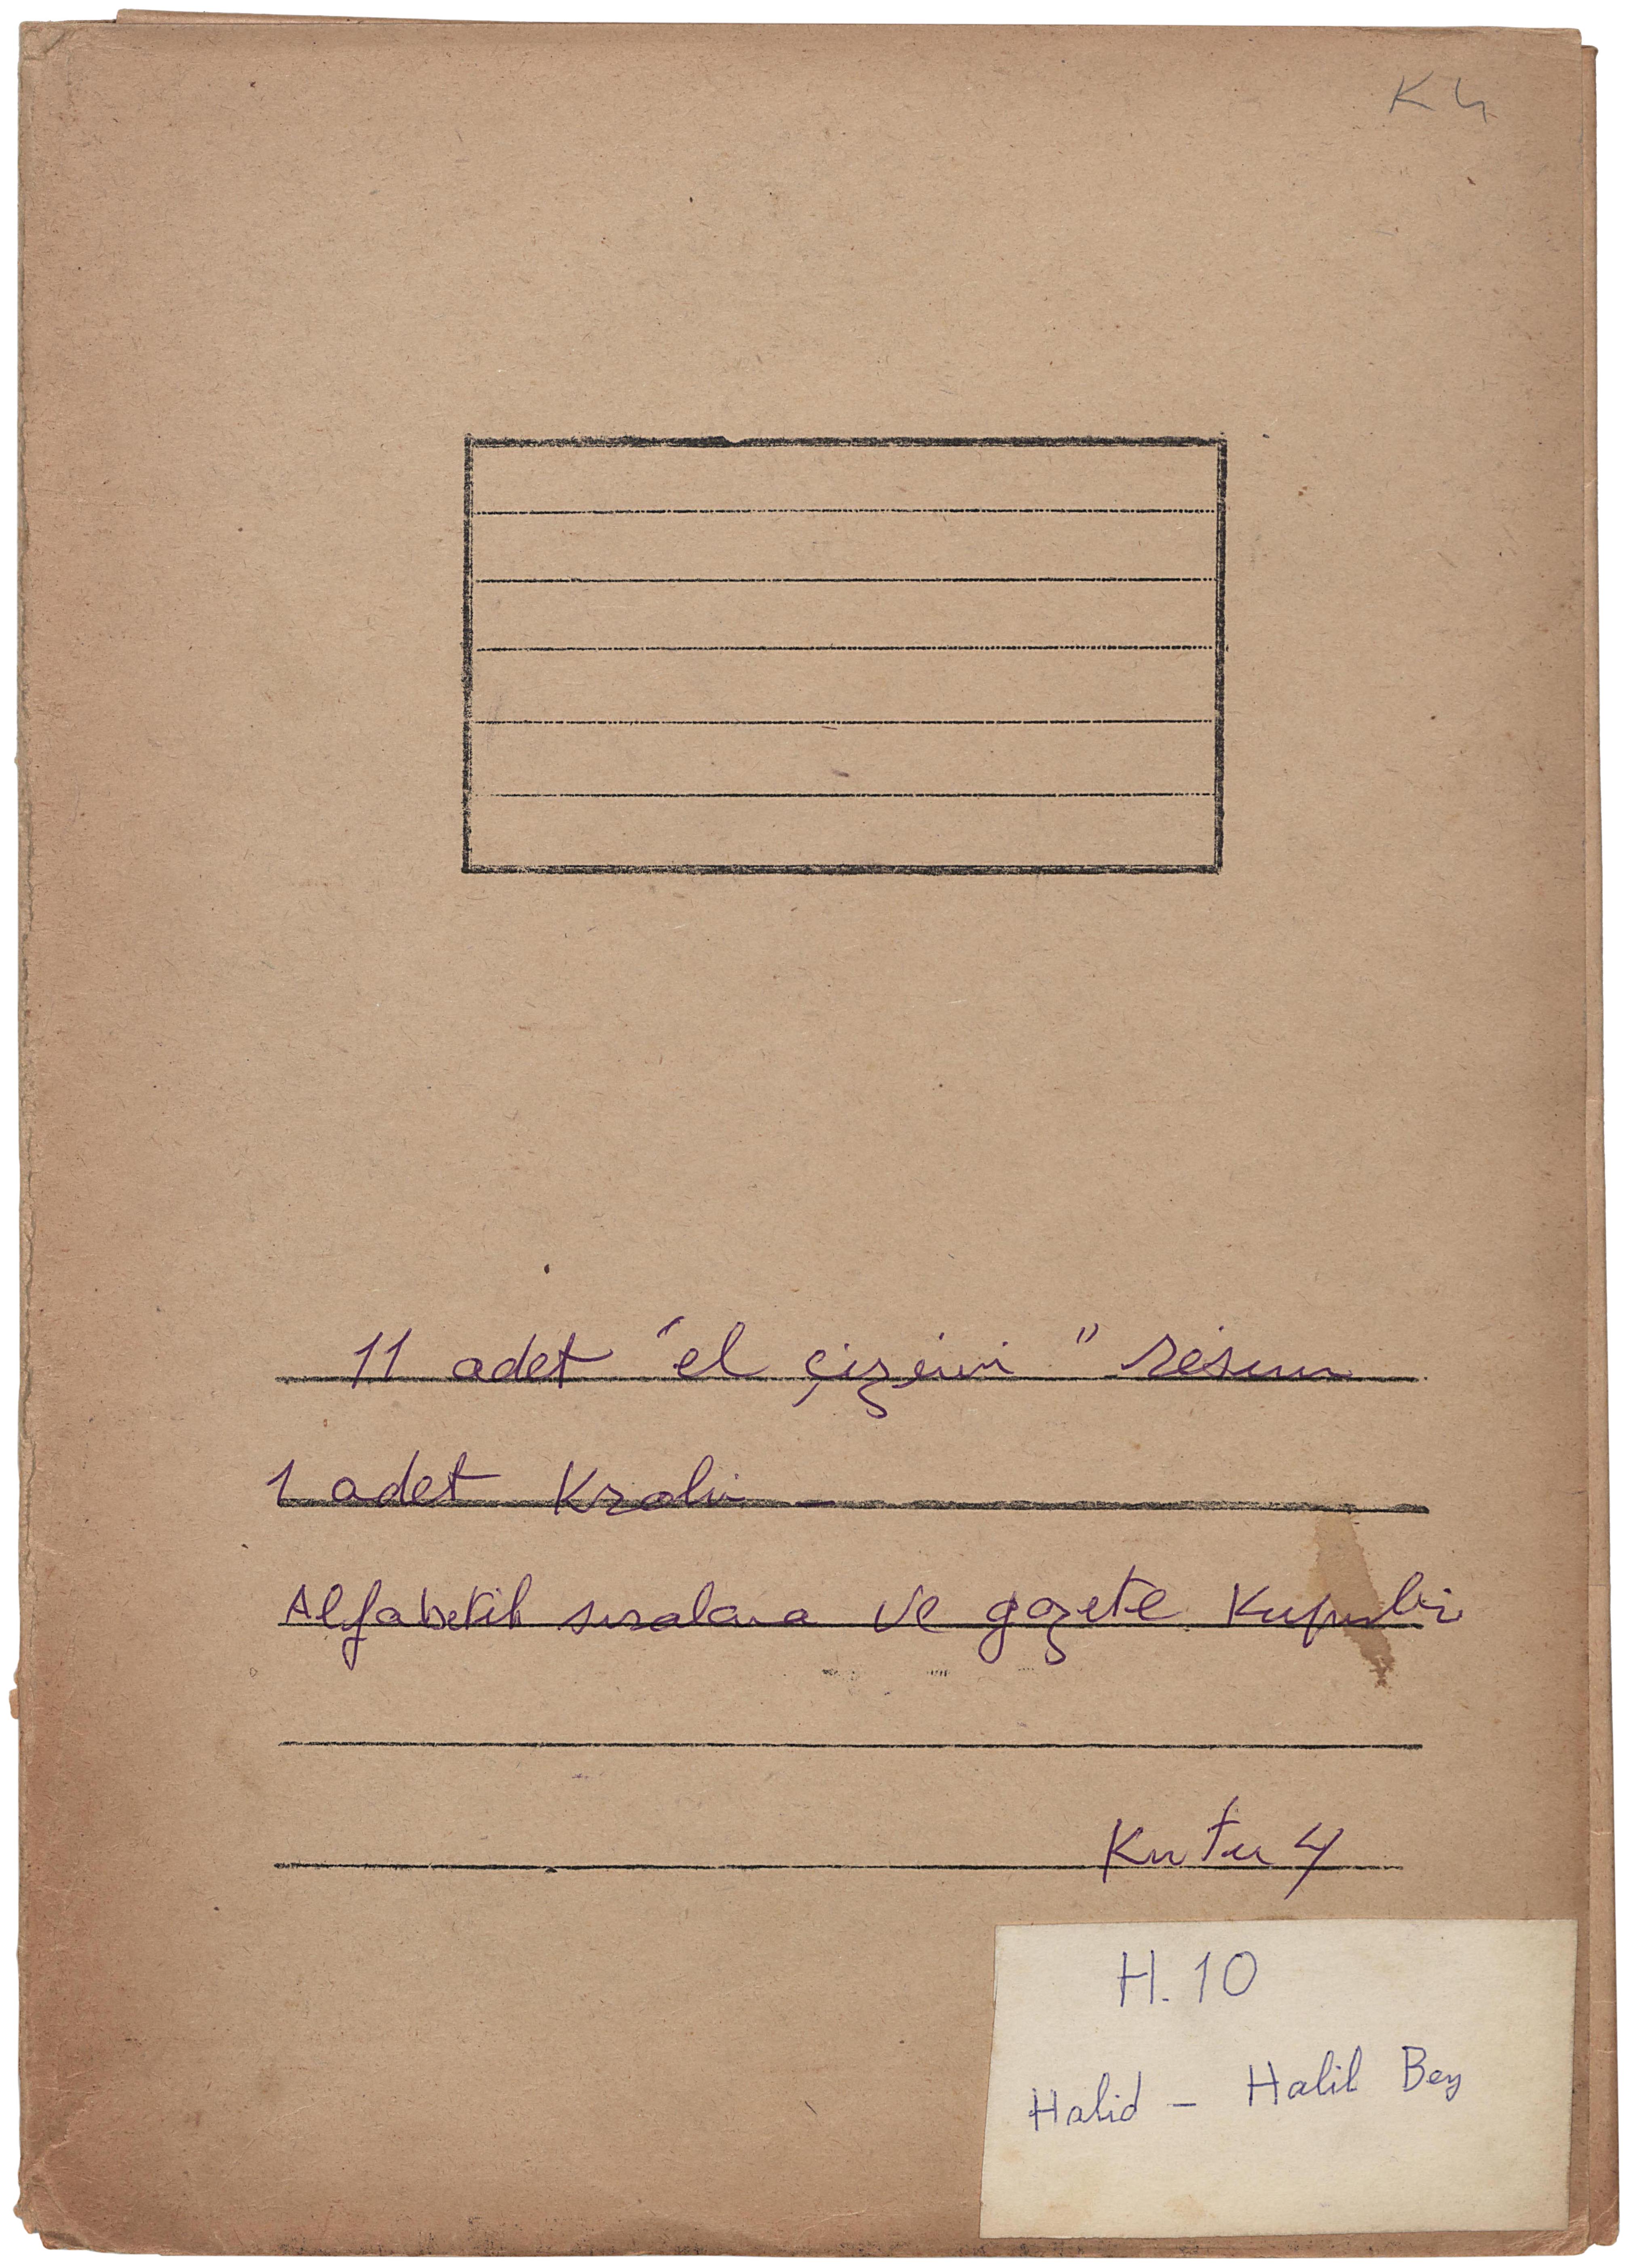 K4
11 adet "el çizimi" resim
1 adet Kroki -
Alfabetik sıralama ve gazete Kupürleri
Kutu 4
H.10
Halid - Halil Bey